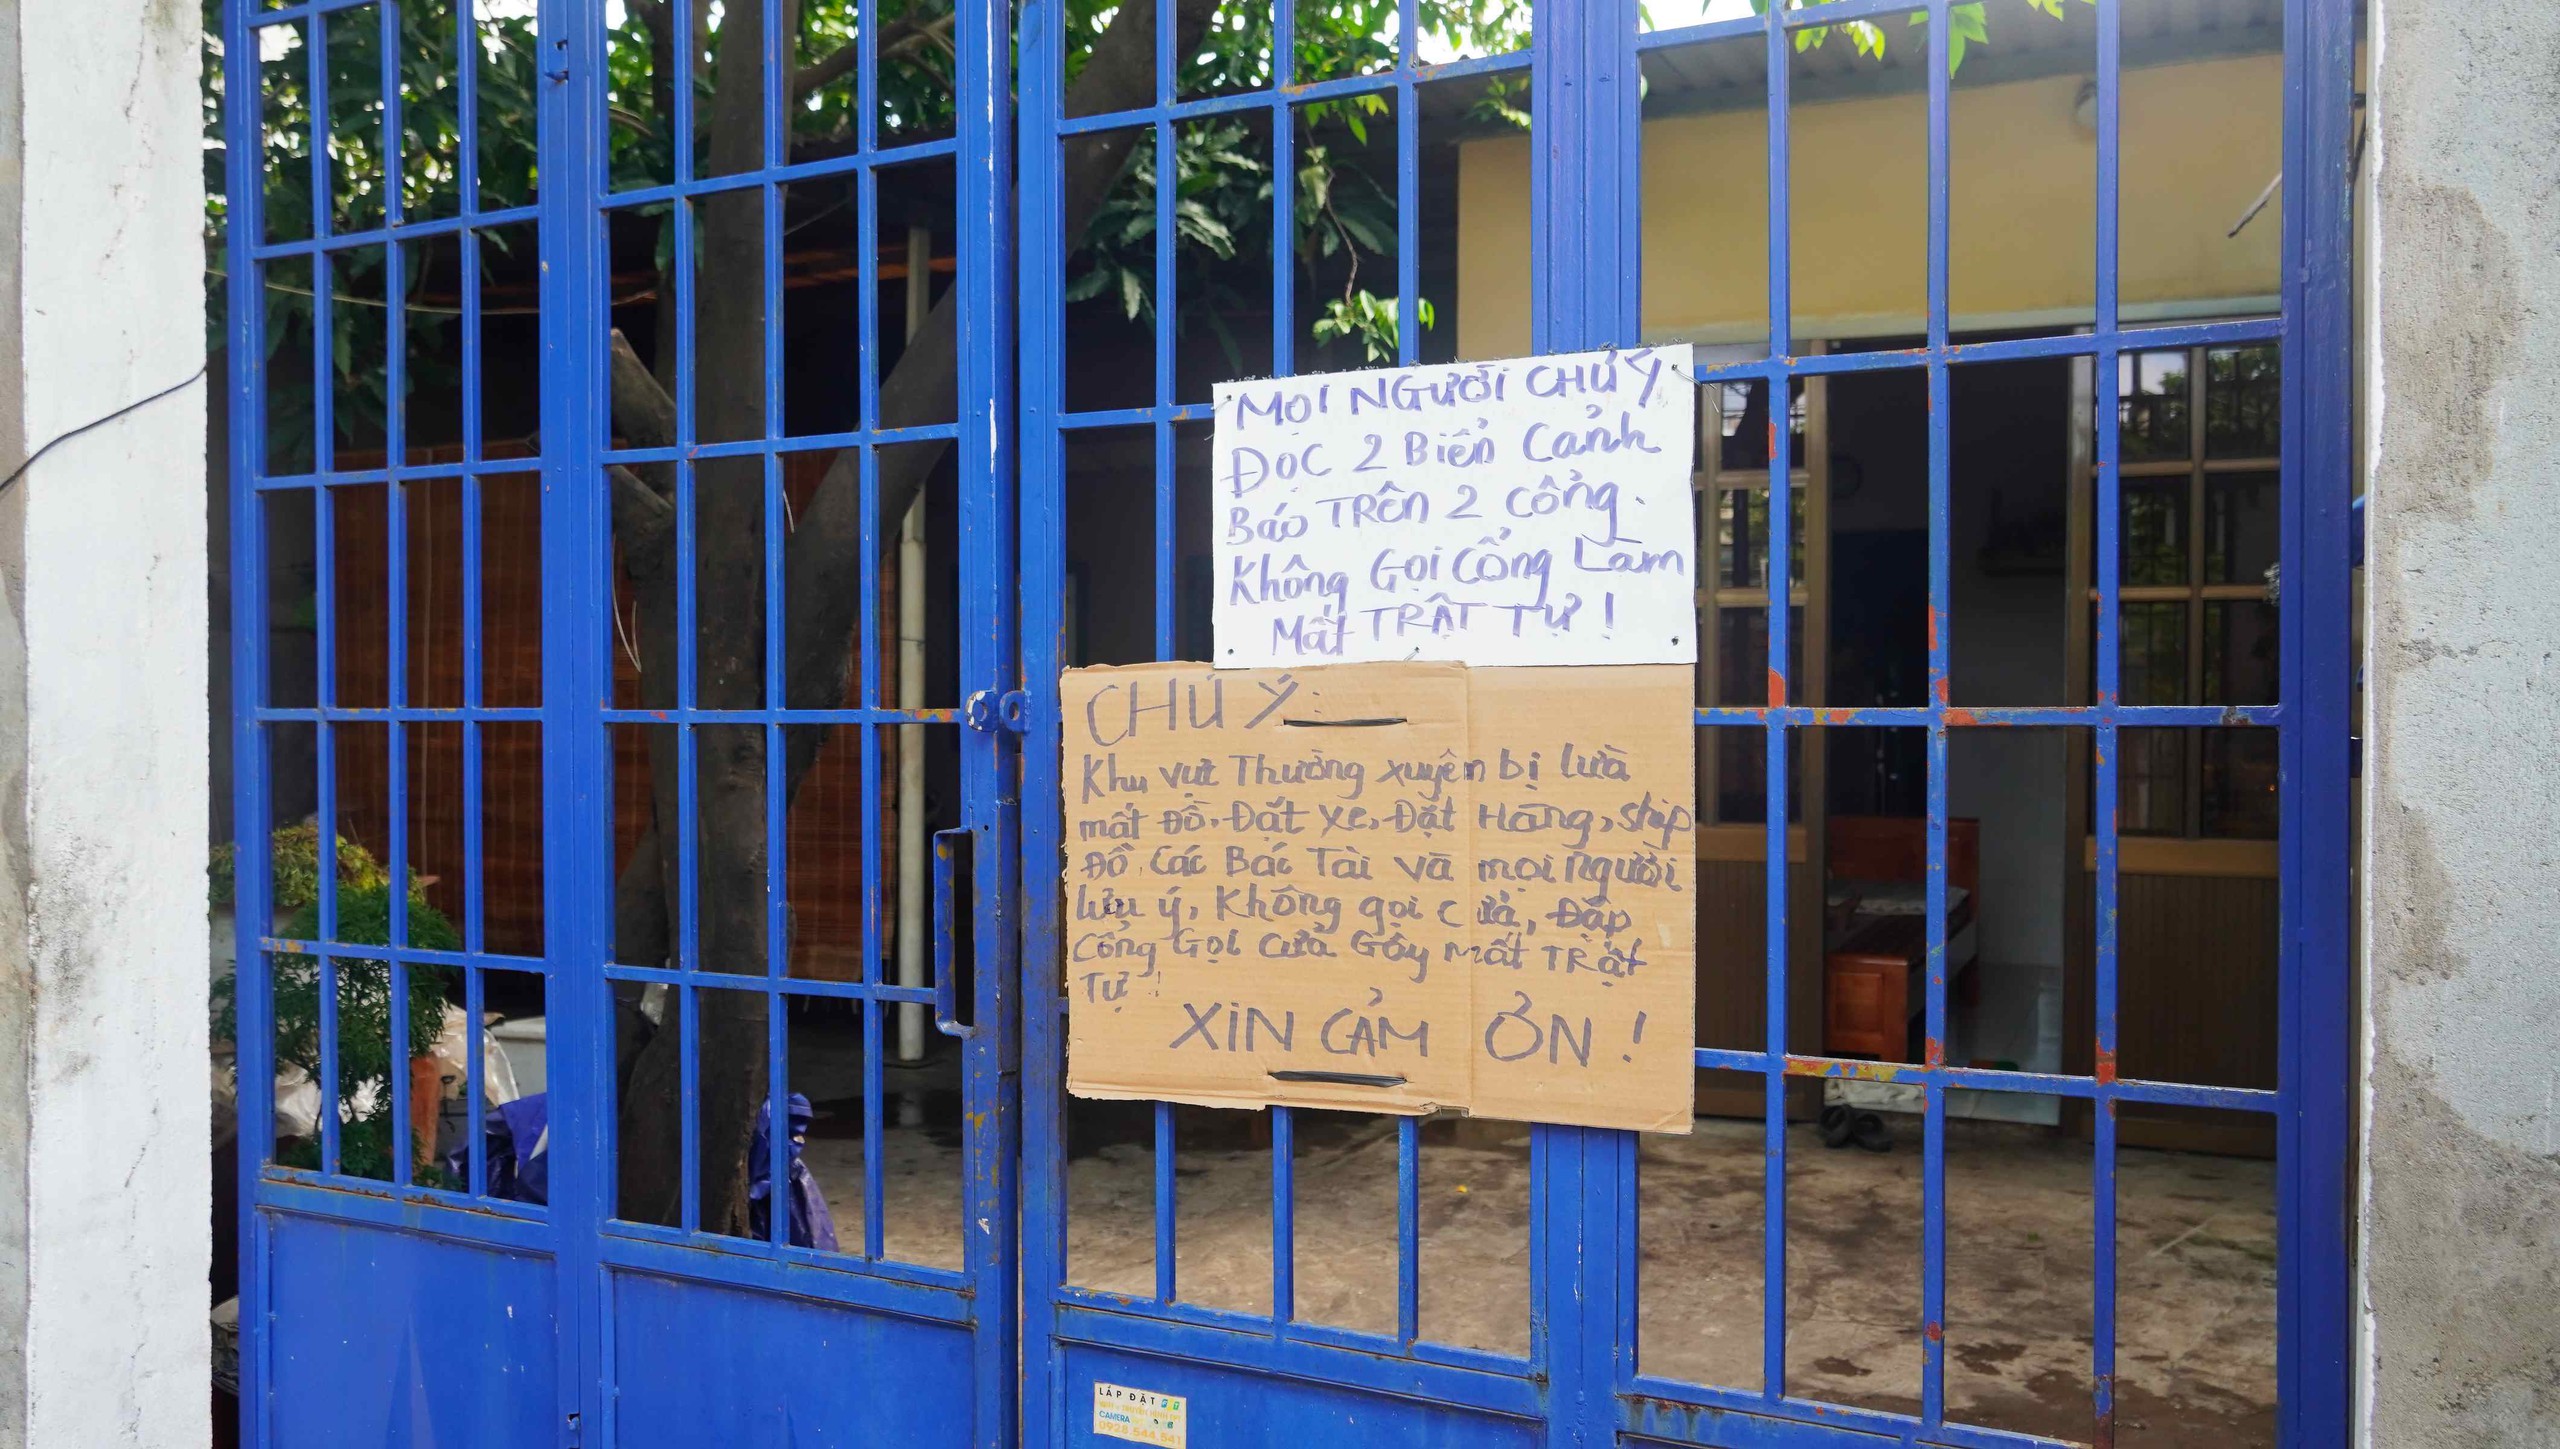 MỌI NGƯỜI CHÚ Ý
ĐỌC 2 Biển Cảnh
Báo TRÊN 2 CỔNG.
Không Gọi Cổng Làm
Mất TRẬT TỰ !
CHÚ Ý:
Khu vực Thường xuyên bị lừa
mất Đồ. Đặt xe, Đặt Hàng, ship
Đồ. Các Bác Tài và mọi người
lưu ý, Không gọi cửa, Đập
Cổng Gọi Cửa Gây mất TRật
Tự !
XIN CẢM ƠN !
LẮP ĐẶT
CAMERA
0928.544.541